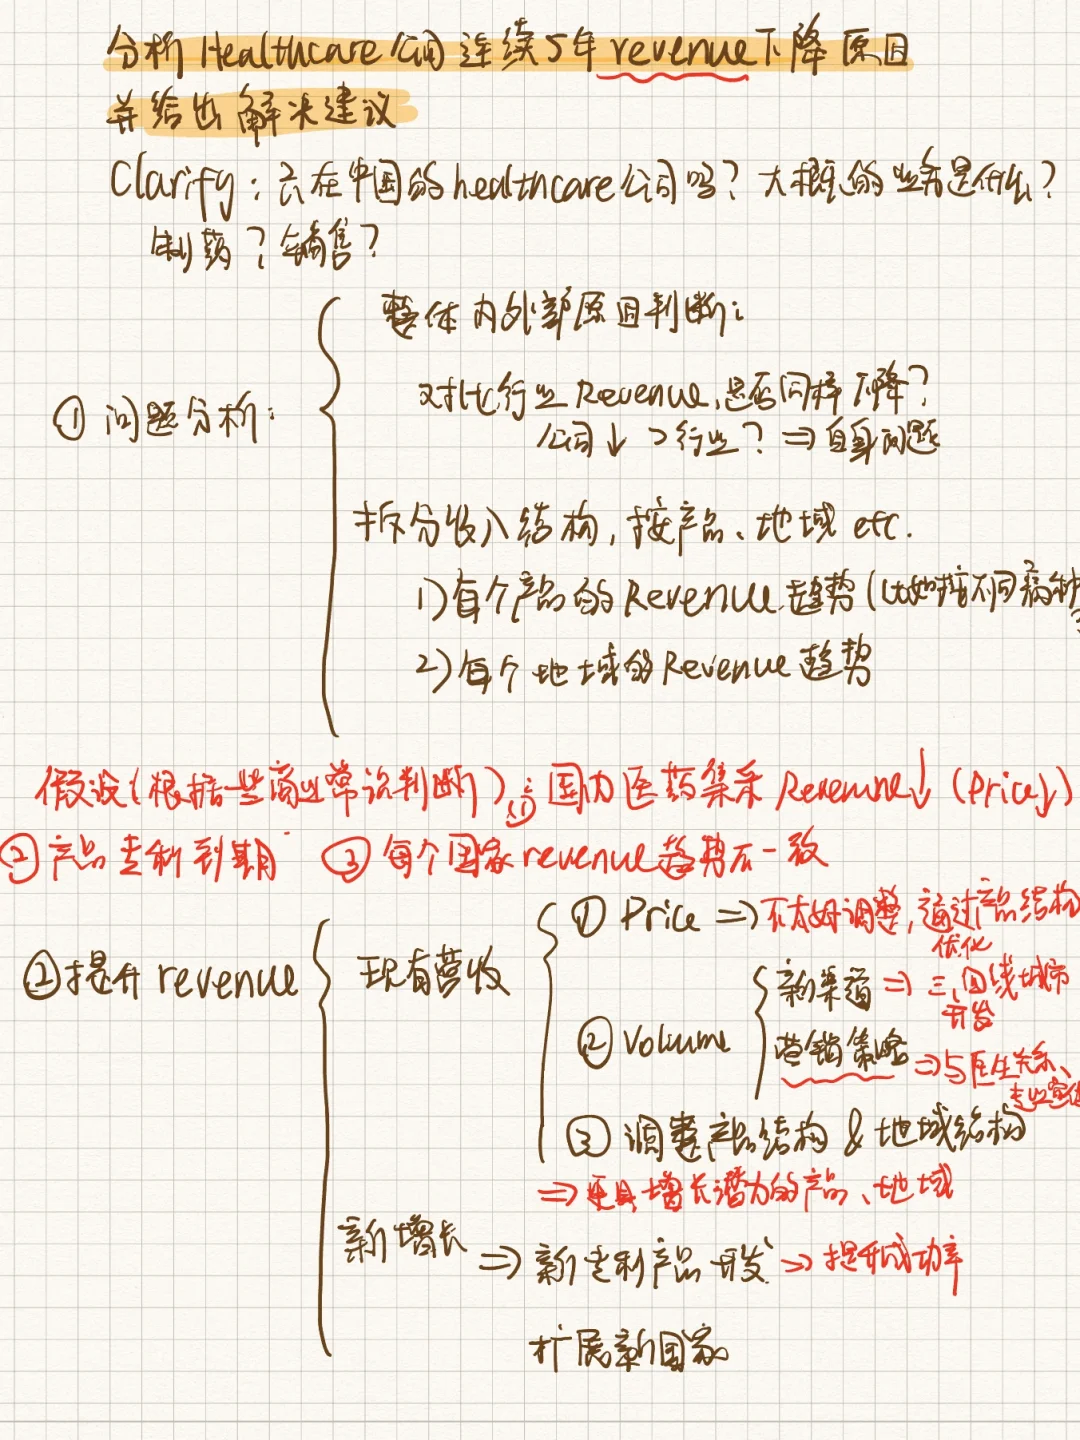 分析Healthcare公司连续5年revenue下降原因
并给出解决建议
Clarify：只在中国的healthcare公司吗？大概的业务是什么？
制药？销售？
①问题分析：
整体内外部原因判断：
对比行业Revenue，是否同样下降？
公司↓>行业？⇒自身问题
拆分收入结构，按产品、地域etc.
1)每个产品的Revenue趋势(比如按不同病种
2)每个地域的Revenue趋势
假设(根据一些商业常识判断)：①国内医药集采Revenue↓(Price↓)
②产品专利到期 ③每个国家revenue趋势不一致
②提升revenue
现有营收
①Price⇒不太好调整，通过产品结构
优化
②Volume
新渠道⇒三、四线城市
开发
营销策略⇒与医生关系、
专业宣传
③调整产品结构&地域结构
⇒更具增长潜力的产品、地域
新增长⇒新专利产品开发→提升成功率
扩展新国家